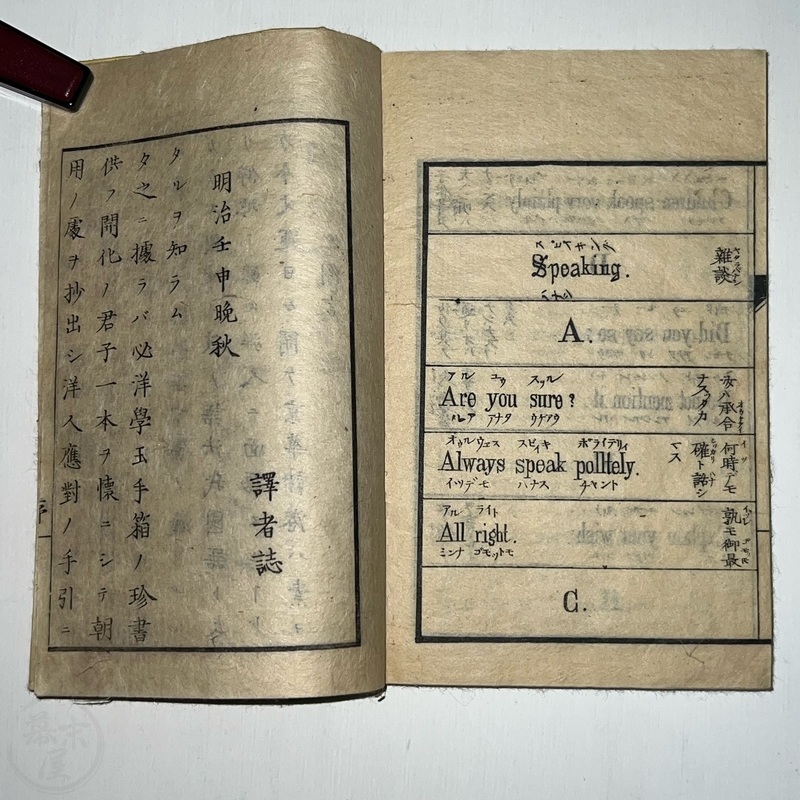 用ノ處ヲ抄出シ洋人應對ノ手引ニ
供フ開化ノ君子一本ヲ懐ニシテ朝
タ之ニ據ラバ必洋學玉手箱ノ珍書
タルヲ知ラム
明治壬申晩秋
譯者誌
Speaking.
雜談
A.
アル ユウ スゥル
Are you sure?
アナタ ウケアウ
汝ハ承合
ナスッタカ
オゥルウェス スピィキ ポライテリィ
Always speak polItely.
イツデモ ハナス チャント
何時デモ
確ト話シ
マス
アル ライト
All right.
ミンナ ゴモットモ
孰モ御最
C.